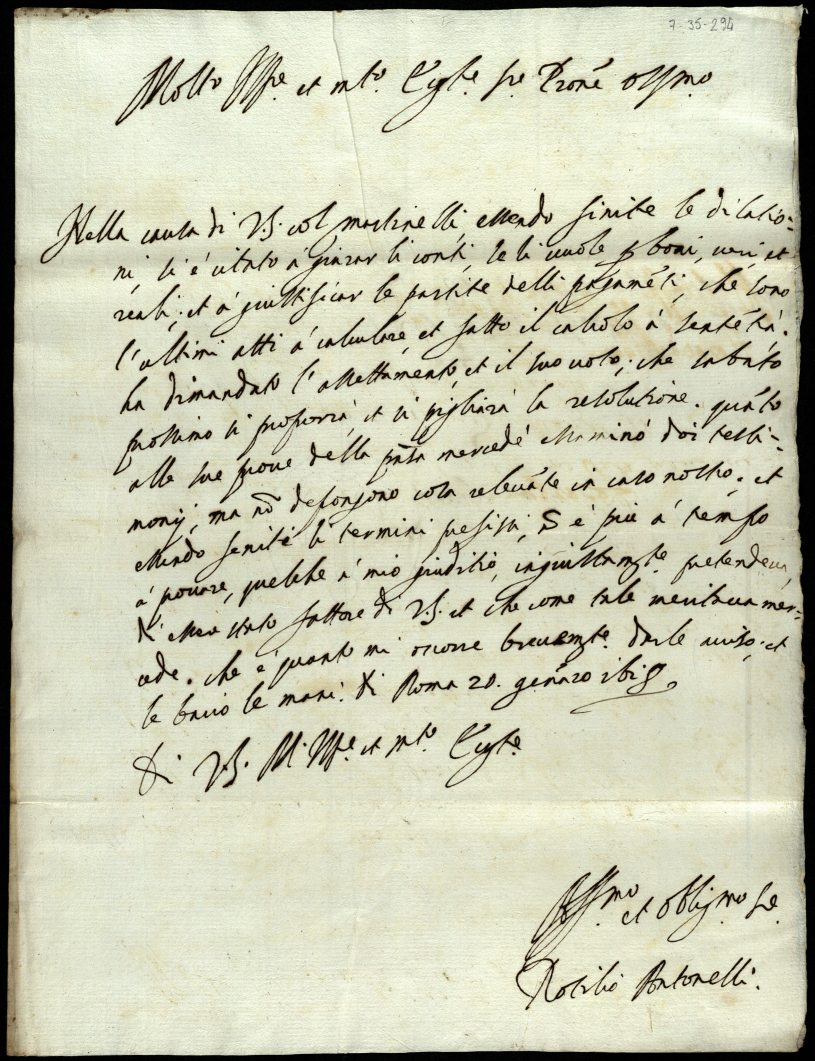 7-35-294
Molto Ill.re et m.to Ecc.te S.re Prone oss.mo
Nella causa di V.S. col Martinelli, essendo finite le dilatio=
ni, si è citato à giurar li conti, se li vuole p boni, veri, et
reali, et à giustificar le partite delli pagaméti, che sono
l'ultimi atti à calculare, et fatto il calcolo à sentétia.
ha dimandato l'assettamento, et il suo voto, che sabato
prossimo si proporrà, et si pigliarà la resolutione. quáto
alle sue prove della mercede essaminò doi testi=
monij, ma nõ depongono cosa relevãte in caso nostro. et
essendo feniti li termini prefissi, è più à tempo
à provare, quelche à mio giuditio, ingiustamẽte pretendeva
d'esser stato fattore di V.S. et che come tale meritava mer=
cede. che è quanto mi occorre brevemẽte darle aviso, et
le bacio le mani. Di Roma 20. genaro
Di V.S. M. Ill.re et m.to Ecc.te
Aff.mo et oblig.mo Se.
Antonelli.